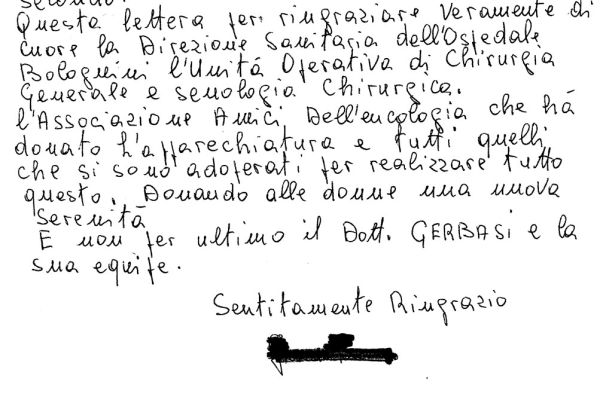 secondo.
Questa lettera per ringraziare veramente di
cuore la Direzione Sanitaria dell'Ospedale
Bolognini l'Unitá Operativa di Chirurgia
Generale e senologia Chirurgica.
l'Associazione Amici Dell'encologia che há
donato l'apparechiatura e tutti quelli
che si sono adoperati per realizzare tutto
questo. Donando alle donne una nuova
serenitá
E non per ultimo il Dott. GERBASI e la
sua equipe.
Sentitamente Ringrazio